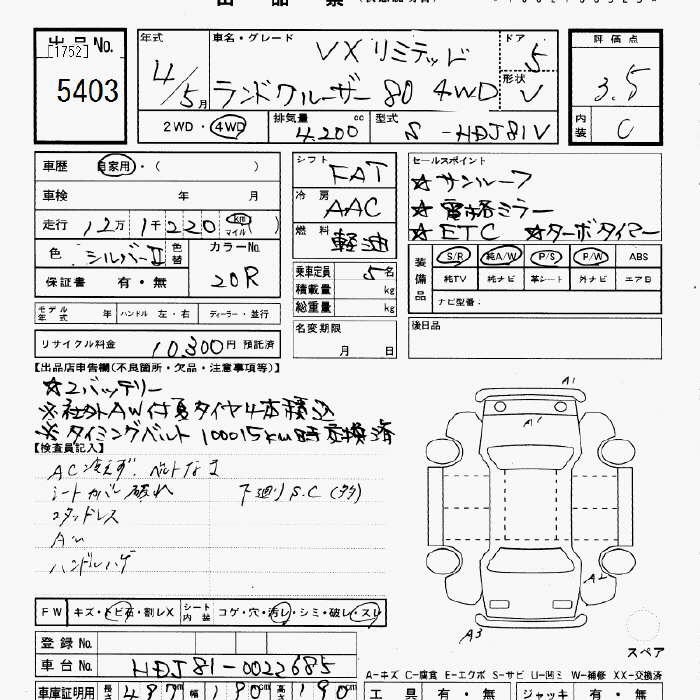 出品No.
[1752]
5403
年式
4/5月
車名・グレード
VXリミテッド
ランドクルーザー80 4WD
ドア
5
形状
V
評価点
3.5
内装
C
2WD・4WD
排気量
4,200cc
型式
S-HDJ81V
車歴
自家用・( )
車検 年 月
走行 12万1千220 km マイル ( )
色
シルバーII
色替
カラーNo.
20R
保証書 有・無
モデル年式 年 ハンドル 左・右 ディーラー・並行
リサイクル料金 10,300円 預託済
シフト
FAT
冷房
AAC
燃料
軽油
乗車定員 5名
積載量 kg
総重量 kg
名変期限
月 日
セールスポイント
☆サンルーフ
☆電格ミラー
☆ETC ☆ターボタイマー
装備品
S/R 純A/W P/S P/W ABS
純TV 純ナビ 革シート 外ナビ エアB
ナビ型番:
後日品
【出品店申告欄(不良箇所・欠品・注意事項等)】
☆2バッテリー
※社外AW付夏タイヤ4本積込
※タイミングベルト100015km時交換済
【検査員記入】
AC冷えず.ベルトなき
シートカバー破れ 下廻りS.C(多多)
スタッドレス
AW
ハンドルハゲ
A1
A1
A2
A3
スペア
FW キズ・トビ石・割レX
シート内装 コゲ・穴・汚レ・シミ・破レ・スレ
登録No.
車台No. HDJ81-0022685
車庫証明用 長さ 487 幅 190 高さ 190
A-キズ C-腐食 E-エクボ S-サビ U-凹ミ W-補修 XX-交換済
工具 有・無 ジャッキ 有・無